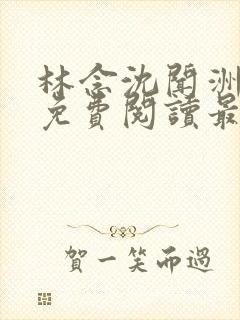 林念沈聞洲
免費閱讀最
賀一笑而過